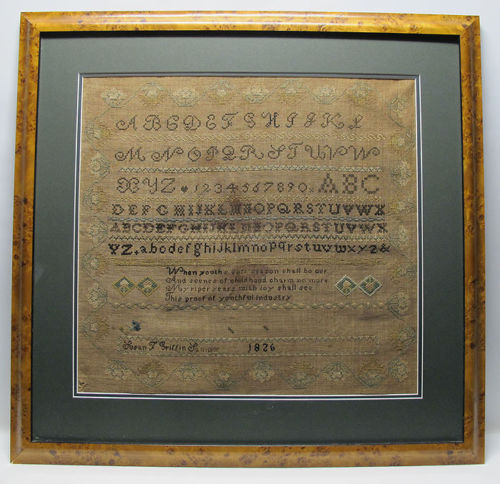 A B C D E F G H I J K L
M N O P Q R S T U V W
X Y Z 1 2 3 4 5 6 7 8 9 0 A B C
D E F G H I J K L M N O P Q R S T U V W X
A B C D E F G H I J K L M N O P Q R S T U V W X
Y Z a b c d e f g h i j k l m n o p q r s t u v w x y z &
When youths season shall be oer
And scenes of childhood charm no more
My riper years with joy shall see
This proof of youthful industry
Susan F Griffin 1826